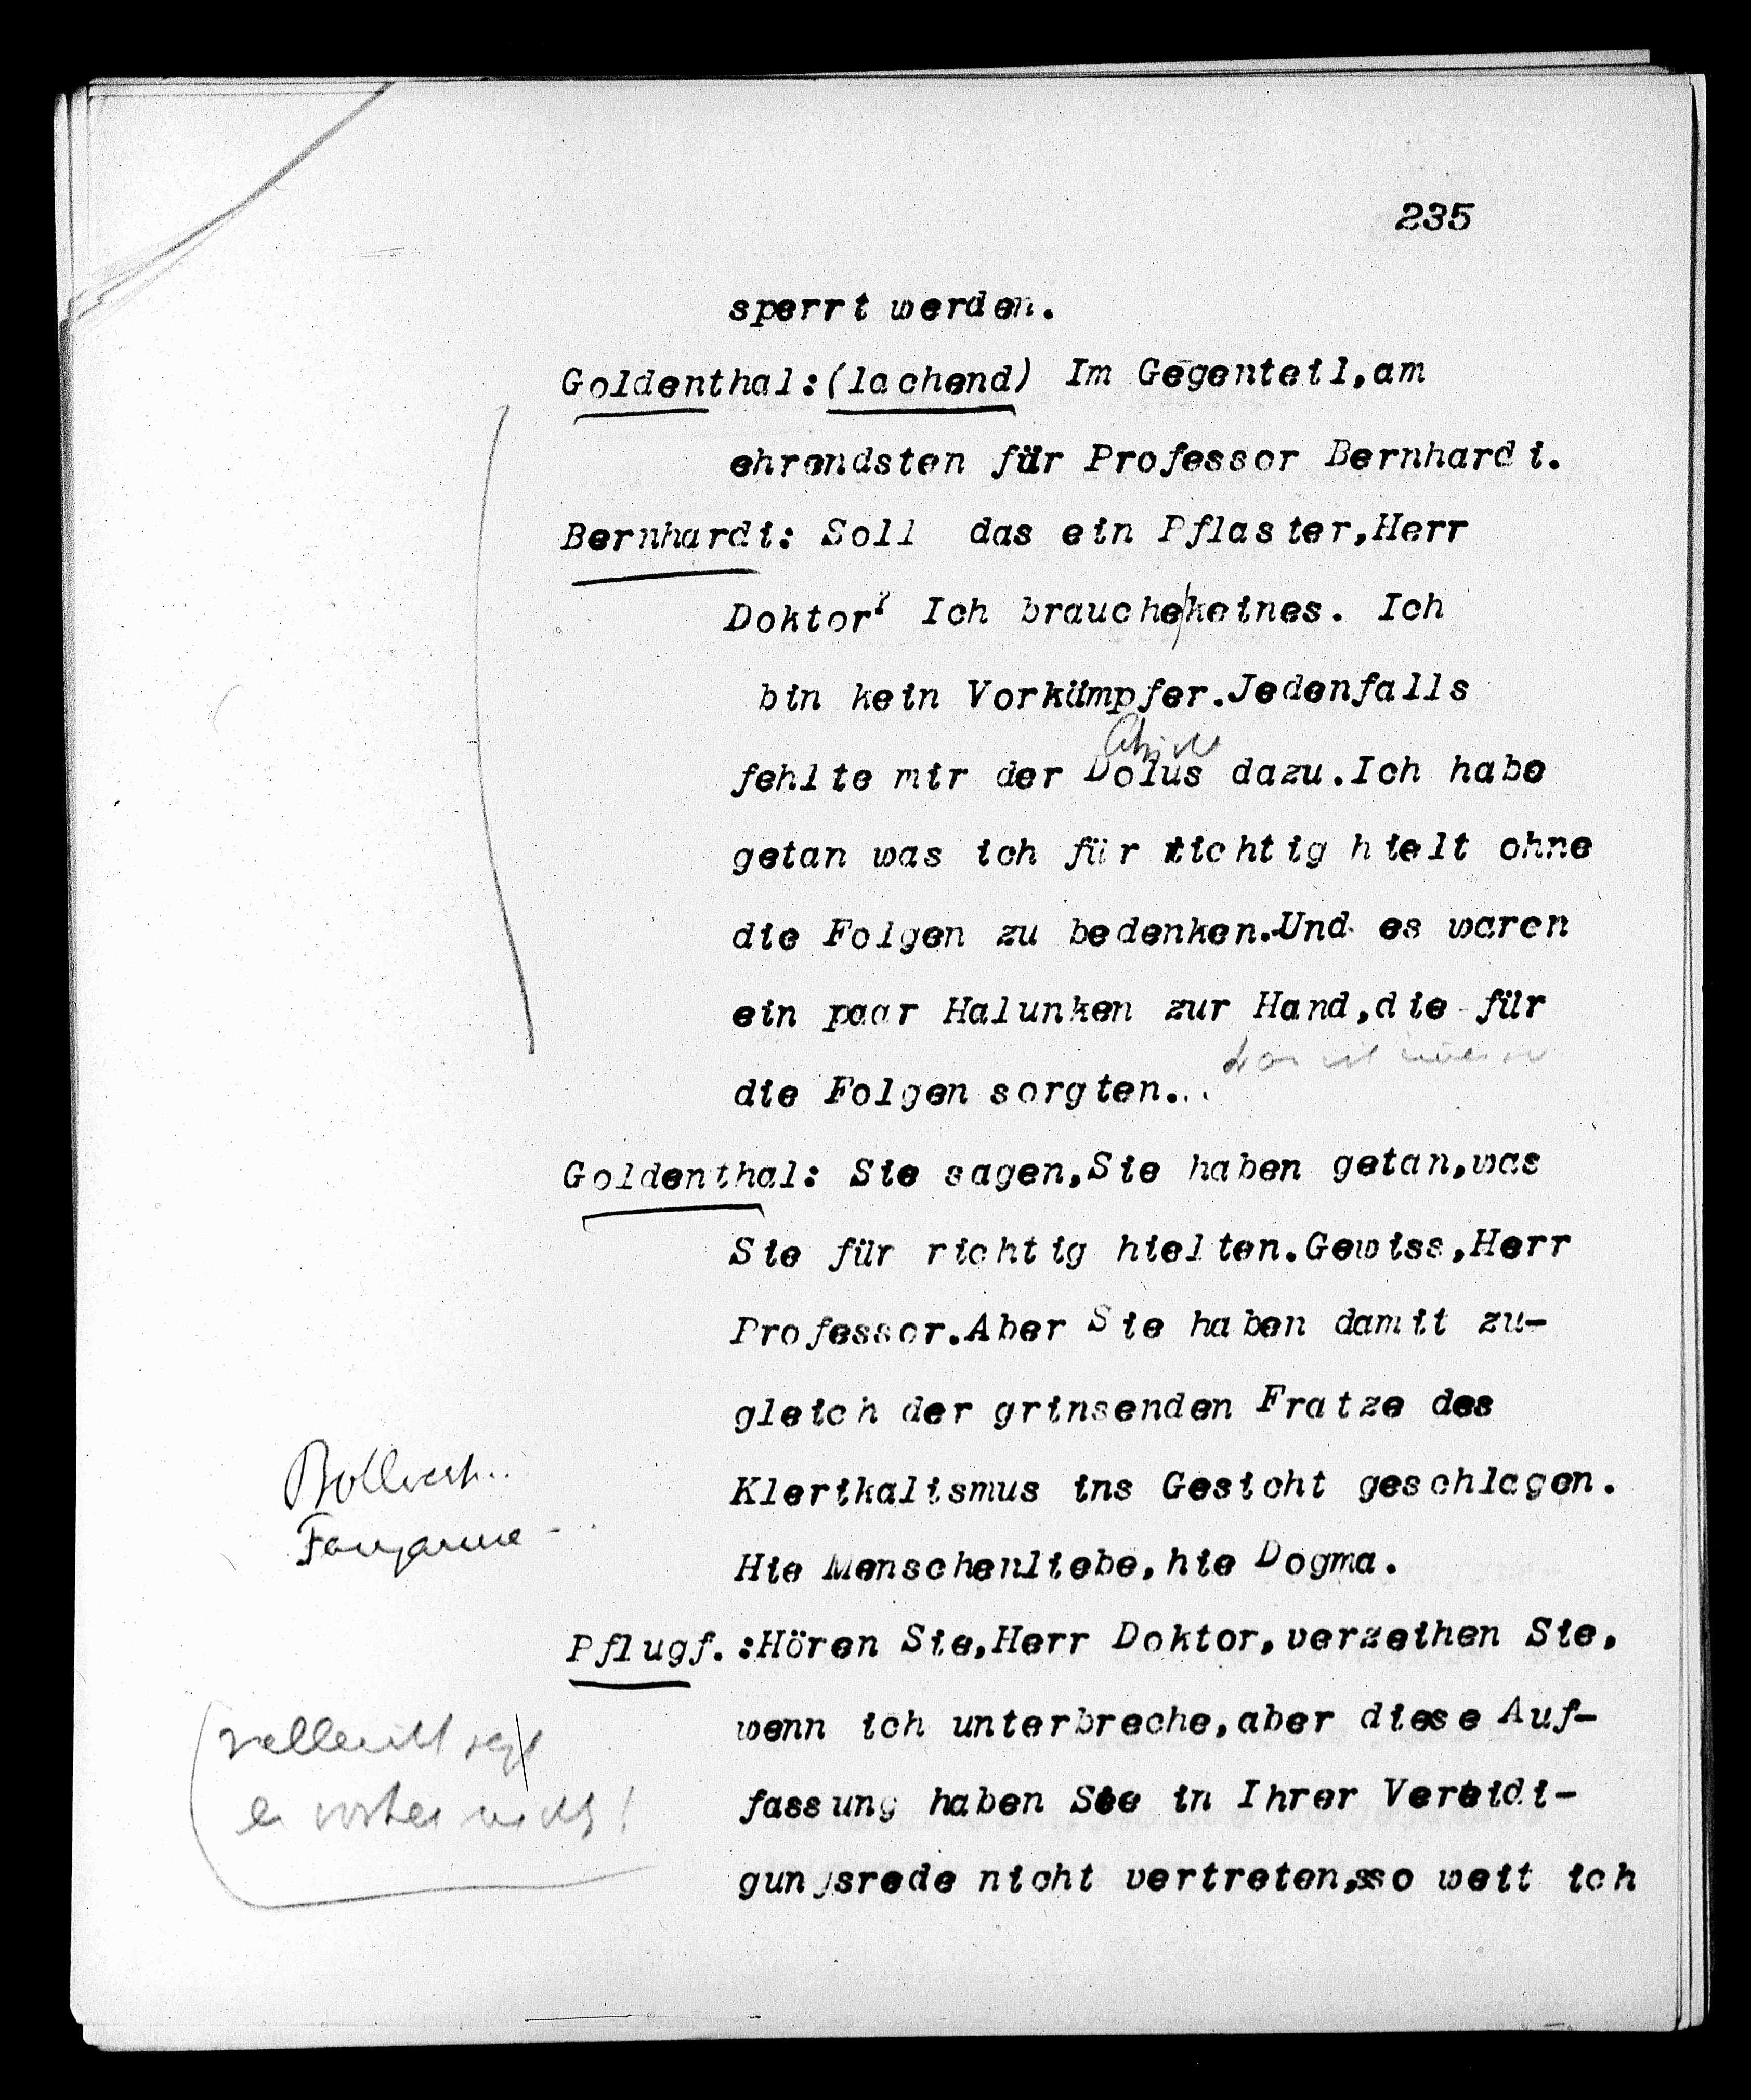 235
sperrt werden.
Goldenthal:(lachend) Im Gegenteil,am
ehrendsten für Professor Bernhardi.
Bernhardi: Soll das ein Pflaster,Herr
Doktor? Ich brauche keines. Ich
bin kein Vorkämpfer.Jedenfalls
fehlte mir der Dolus dazu.Ich habe
getan was ich für richtig hielt ohne
die Folgen zu bedenken.Und es waren
ein paar Halunken zur Hand,die für
die Folgen sorgten...
Goldenthal: Sie sagen,Sie haben getan,was
Sie für richtig hielten.Gewiss,Herr
Professor.Aber Sie haben damit zu-
gleich der grinsenden Fratze des
Klerikalismus ins Gesicht geschlagen.
Bollwerk..
Fangarme -
Hie Menschenliebe,hie Dogma.
Pflugf.:Hören Sie,Herr Doktor,verzeihen Sie,
wenn ich unterbreche,aber diese Auf-
vielleicht sagt
fassung haben Sie in Ihrer Verteidi-
er vorher nichts!
gungsrede nicht vertreten,so weit ich